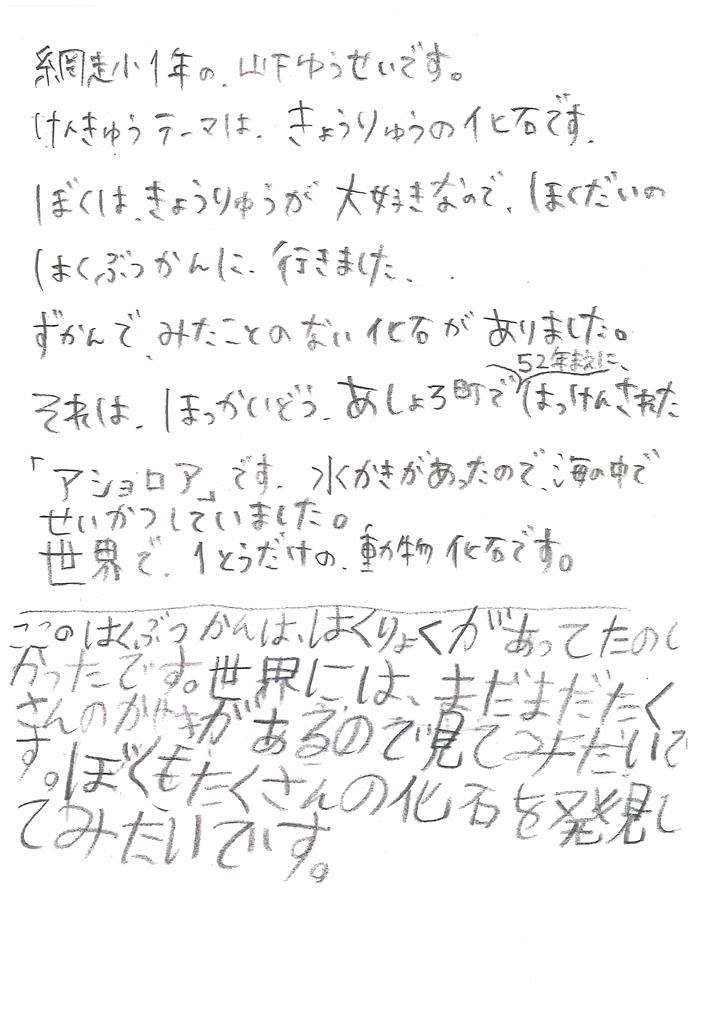 網走小1年の、山下ゆうせいです。
けんきゅうテーマは、きょうりゅうの化石です。
ぼくは、きょうりゅうが大好きなので、ほくだいの
はくぶつかんに、行きました、
ずかんで、みたことのない化石がありました。
52年まえに、
それは、ほっかいどう、あしょろ町ではっけんされた
「アショロア」です。水かきがあったので、海の中で
せいかつしていました。
世界で、1とうだけの、動物化石です。
ここのはくぶつかんは、はくりょくがあってたのし
かったです。世界には、まだまだたく
さんのがあるので見てみたいで
す。ぼくもたくさんの化石を発見し
てみたいです。